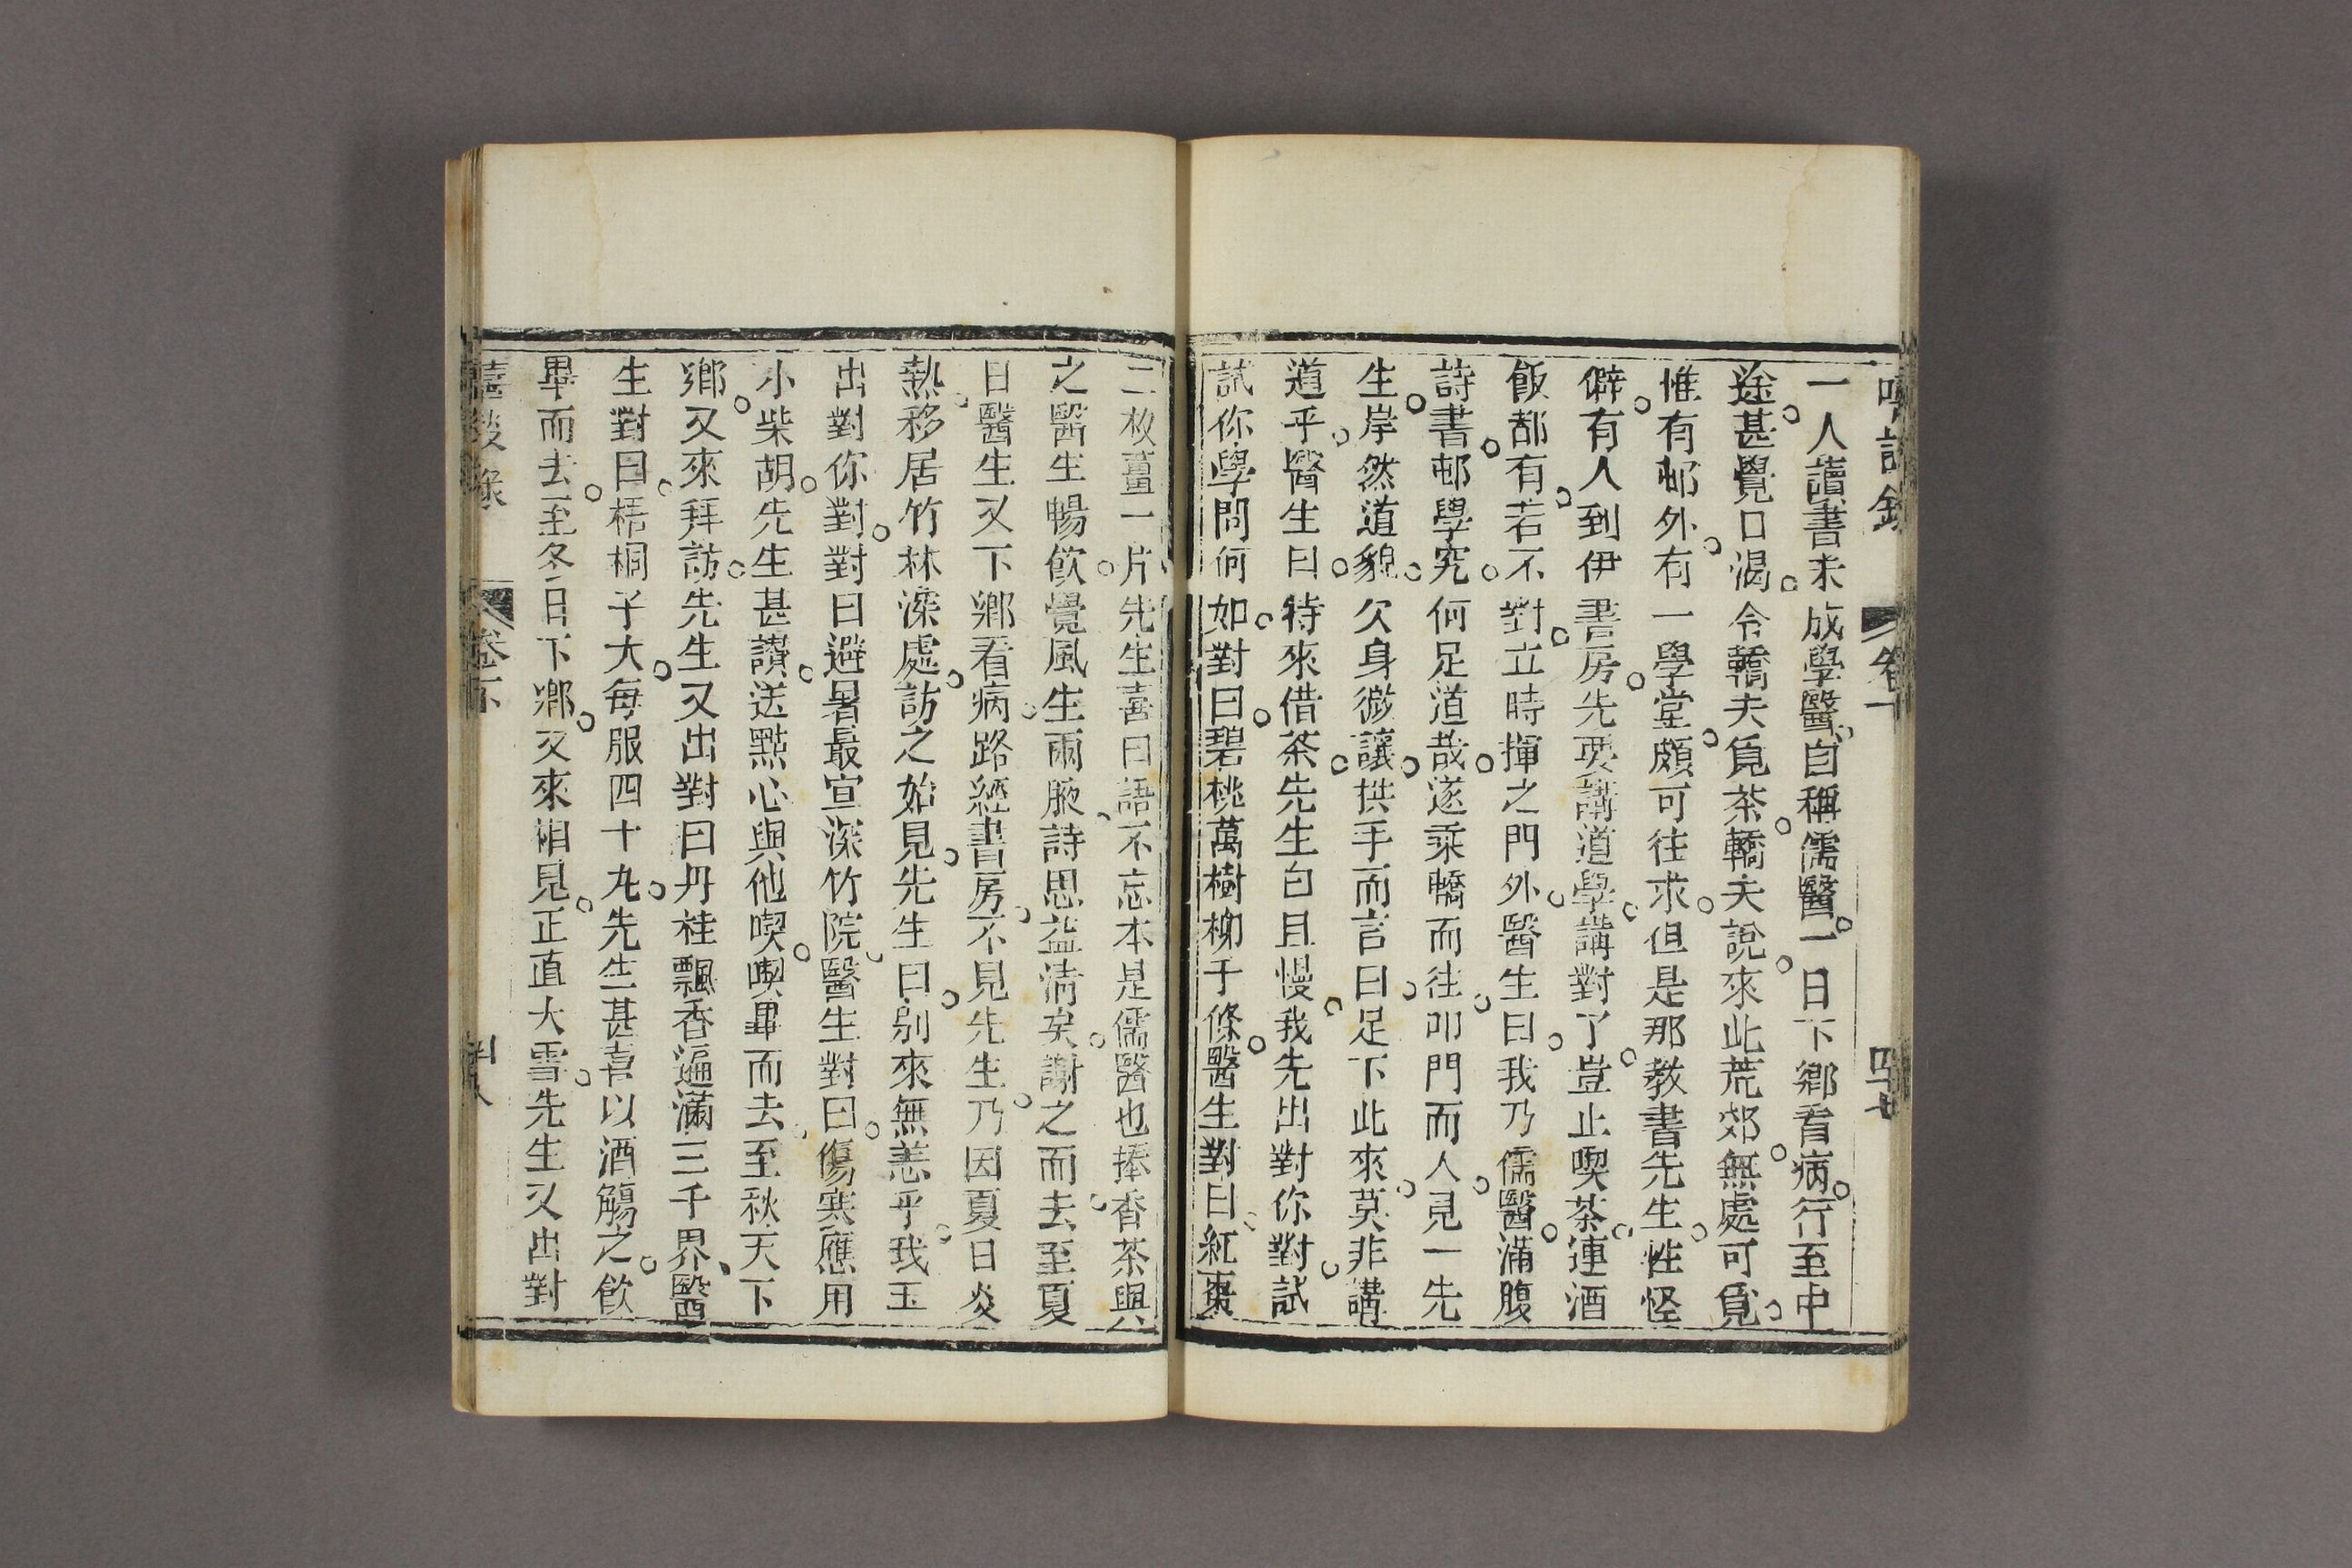 一人讀書未成學醫自稱儒醫一日下鄉看病行至中
途甚覺口渴令轎夫覓茶轎夫說來此荒郊無處可覓
惟有邨外有一學堂頗可往求但是那教書先生性怪
僻有人到伊書房先要講道學講對了豈止喫茶連酒
飯都有若不對立時揮之門外醫生曰我乃儒醫滿腹
詩書邨學究何足道哉遂乘轎而往叩門而入見一先
生岸然道貌欠身微讓拱手而言曰足下此來莫非講
道乎醫生曰待來借茶先生曰且慢我先出對你對試
試你學問何如對曰碧桃萬樹柳千條醫生對曰紅棗
二枚薑一片先生喜曰語不忘本是儒醫也捧香茶與
之醫生暢飲覺風生兩腋詩思益清矣謝之而去至夏
日醫生又下鄉看病路經書房不見先生乃因夏日炎
熱移居竹林深處訪之始見先生曰別來無恙乎我玉
出對你對對曰避暑最宜深竹院醫生對曰傷寒應用
小柴胡先生甚讚送點心與他喫喫畢而去至秋天下
鄉又來拜訪先生又出對曰丹桂飄香遍滿三千界醫
生對曰梧桐子大每服四十九先生甚喜以酒觴之飲
畢而去至冬日下鄉又來相見正直大雪先生又出對
卷下